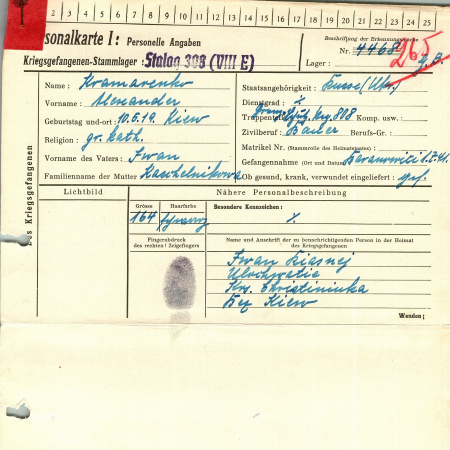 2 3 4 5 6 7 8 9 10 11 12 13 14 15 16 17 18 19 20 21 22 23 24 25
sonalkarte I: Personelle Angaben
Kriegsgefangenen-Stammlager: Stalag 308 (VIII E)
Beschriftung der Erkennungsmarke
Nr. 4468
265
Lager:
Des Kriegsgefangenen
Name: Kramarenko
Vorname: Alexander
Geburtstag und -ort: 10.5.19. Kiew
Religion: gr. kath.
Vorname des Vaters: Iwan
Familienname der Mutter: Kaschelnikowa
Staatsangehörigkeit: Russe (Ukr.)
Dienstgrad:
Truppenteil: 808 Komp. usw.:
Zivilberuf: Bauer Berufs-Gr.:
Matrikel Nr. (Stammrolle des Heimatstaates):
Gefangennahme (Ort und Datum):
Ob gesund, krank, verwundet eingeliefert: ges.
Lichtbild
Nähere Personalbeschreibung
Grösse
Haarfarbe
Besondere Kennzeichen:
164
schwarz
Fingerabdruck
des rechten Zeigefingers
Name und Anschrift der zu benachrichtigenden Person in der Heimat
des Kriegsgefangenen
Iwan
Krs. Christiniuka
Bez Kiew
Wenden;